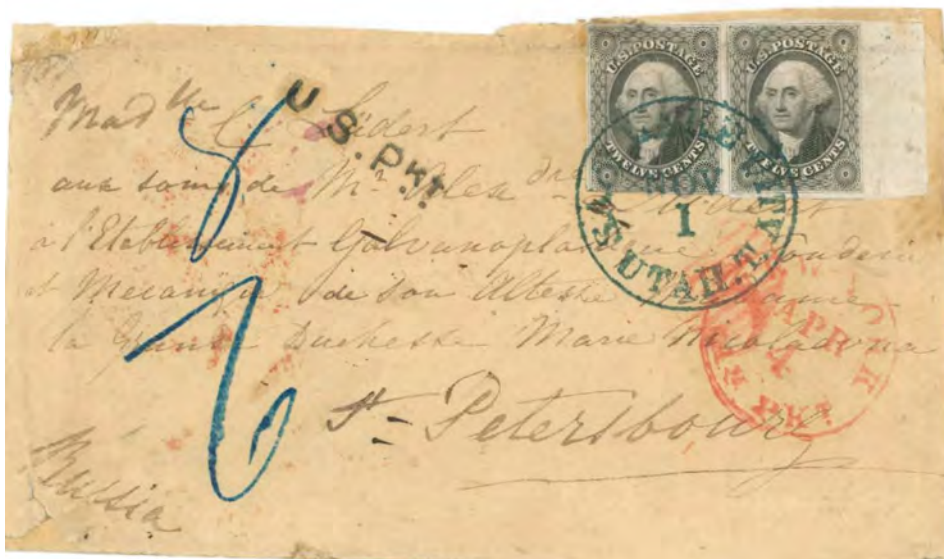 U.S. POSTAGE
TWELVE CENTS
U.S. POSTAGE
TWELVE CENTS
U.S. Pkt.
NOV
1
UTAH.T.
8
Mad lle C.
aux soins de Mr.
à l'Etablissement Galvanoplastique Fonderie
et Mecanique de Son Altesse
la Grande Duchesse Marie Nicolaevna
APR
PKT.
St- Petersbourg
Russia